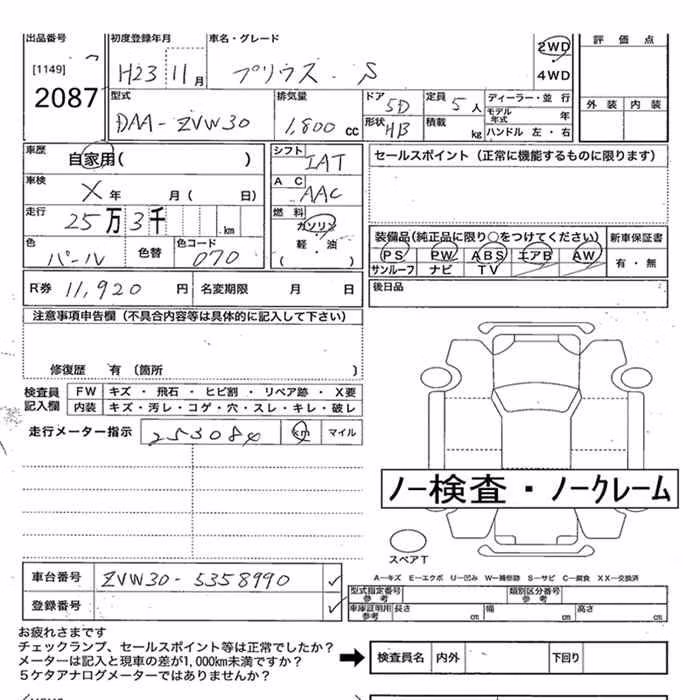 出品番号 初度登録年月 車名・グレード 2WD 評価点
[1149] H23 11月 プリウス・S 4WD
2087 型式 排気量 ドア 5D 定員 5人 ディーラー・並行 外装 内装
DAA-ZVW30 1,800cc 形状 HB 積載 kg モデル年式 年
ハンドル 左・右
車歴 自家用( ) シフト IAT セールスポイント(正常に機能するものに限ります)
車検 X年 月( 日) AC AAC
走行 25万3千 .km 燃料 ガソリン
軽・油
( )
装備品(純正品に限り○をつけてください) 新車保証書
色 パール 色替 色コード 070 PS PW ABS エアB AW 有・無
サンルーフ ナビ TV
R券 11,920円 名変期限 月 日 後日品
注意事項申告欄(不具合内容等は具体的に記入して下さい)
修復歴 有(箇所 )
検査員記入欄 FW キズ・飛石・ヒビ割・リペア跡・X要
内装 キズ・汚レ・コゲ・穴・スレ・キレ・破レ
走行メーター指示 253084 km マイル
ノー検査・ノークレーム
スペアT
A―キズ E―エクボ U―凹み W―補修跡 S―サビ C―腐食 XX―交換済
車台番号 ZVW30-5358990 型式指定番号参考 類別区分番号参考
登録番号 車庫証明用参考 長さ cm 幅 cm 高さ cm
お疲れさまです
チェックランプ、セールスポイント等は正常でしたか?
メーターは記入と現車の差が1,000km未満ですか? ➡ 検査員名 内外 下回り
5ケタアナログメーターではありませんか?